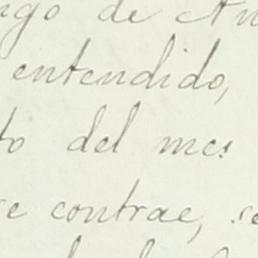 de
entendido,
del mes
contrae,